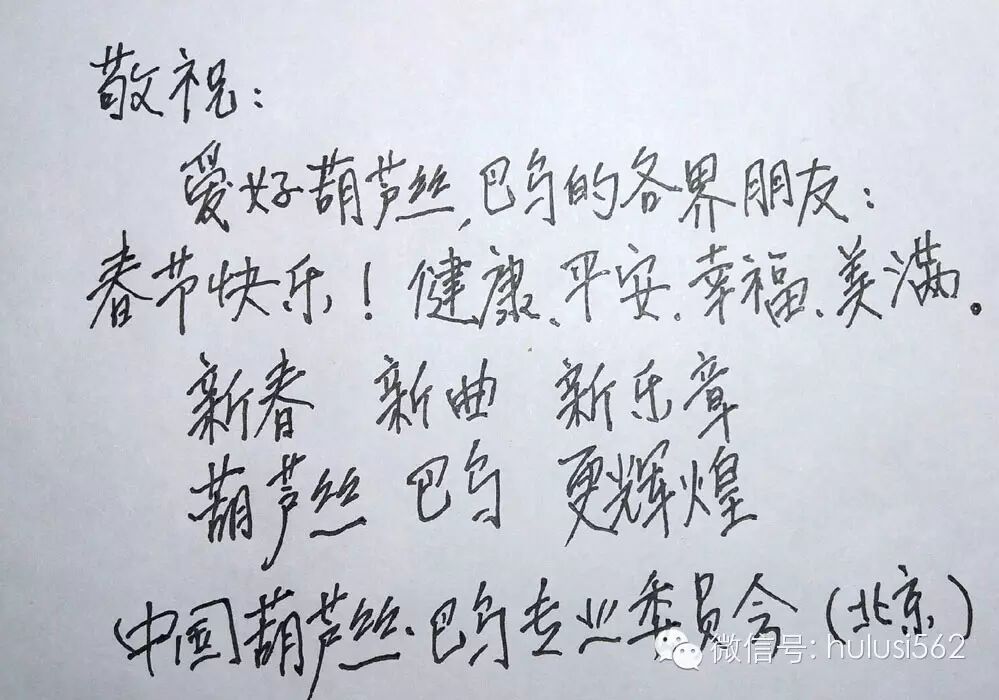 敬祝：
爱好葫芦丝,巴乌的各界朋友：
春节快乐！健康、平安、幸福、美满。
新春 新曲 新乐章
葫芦丝 巴乌 更辉煌
中国葫芦丝、巴乌专业委员会(北京)
微信号: hulusi562